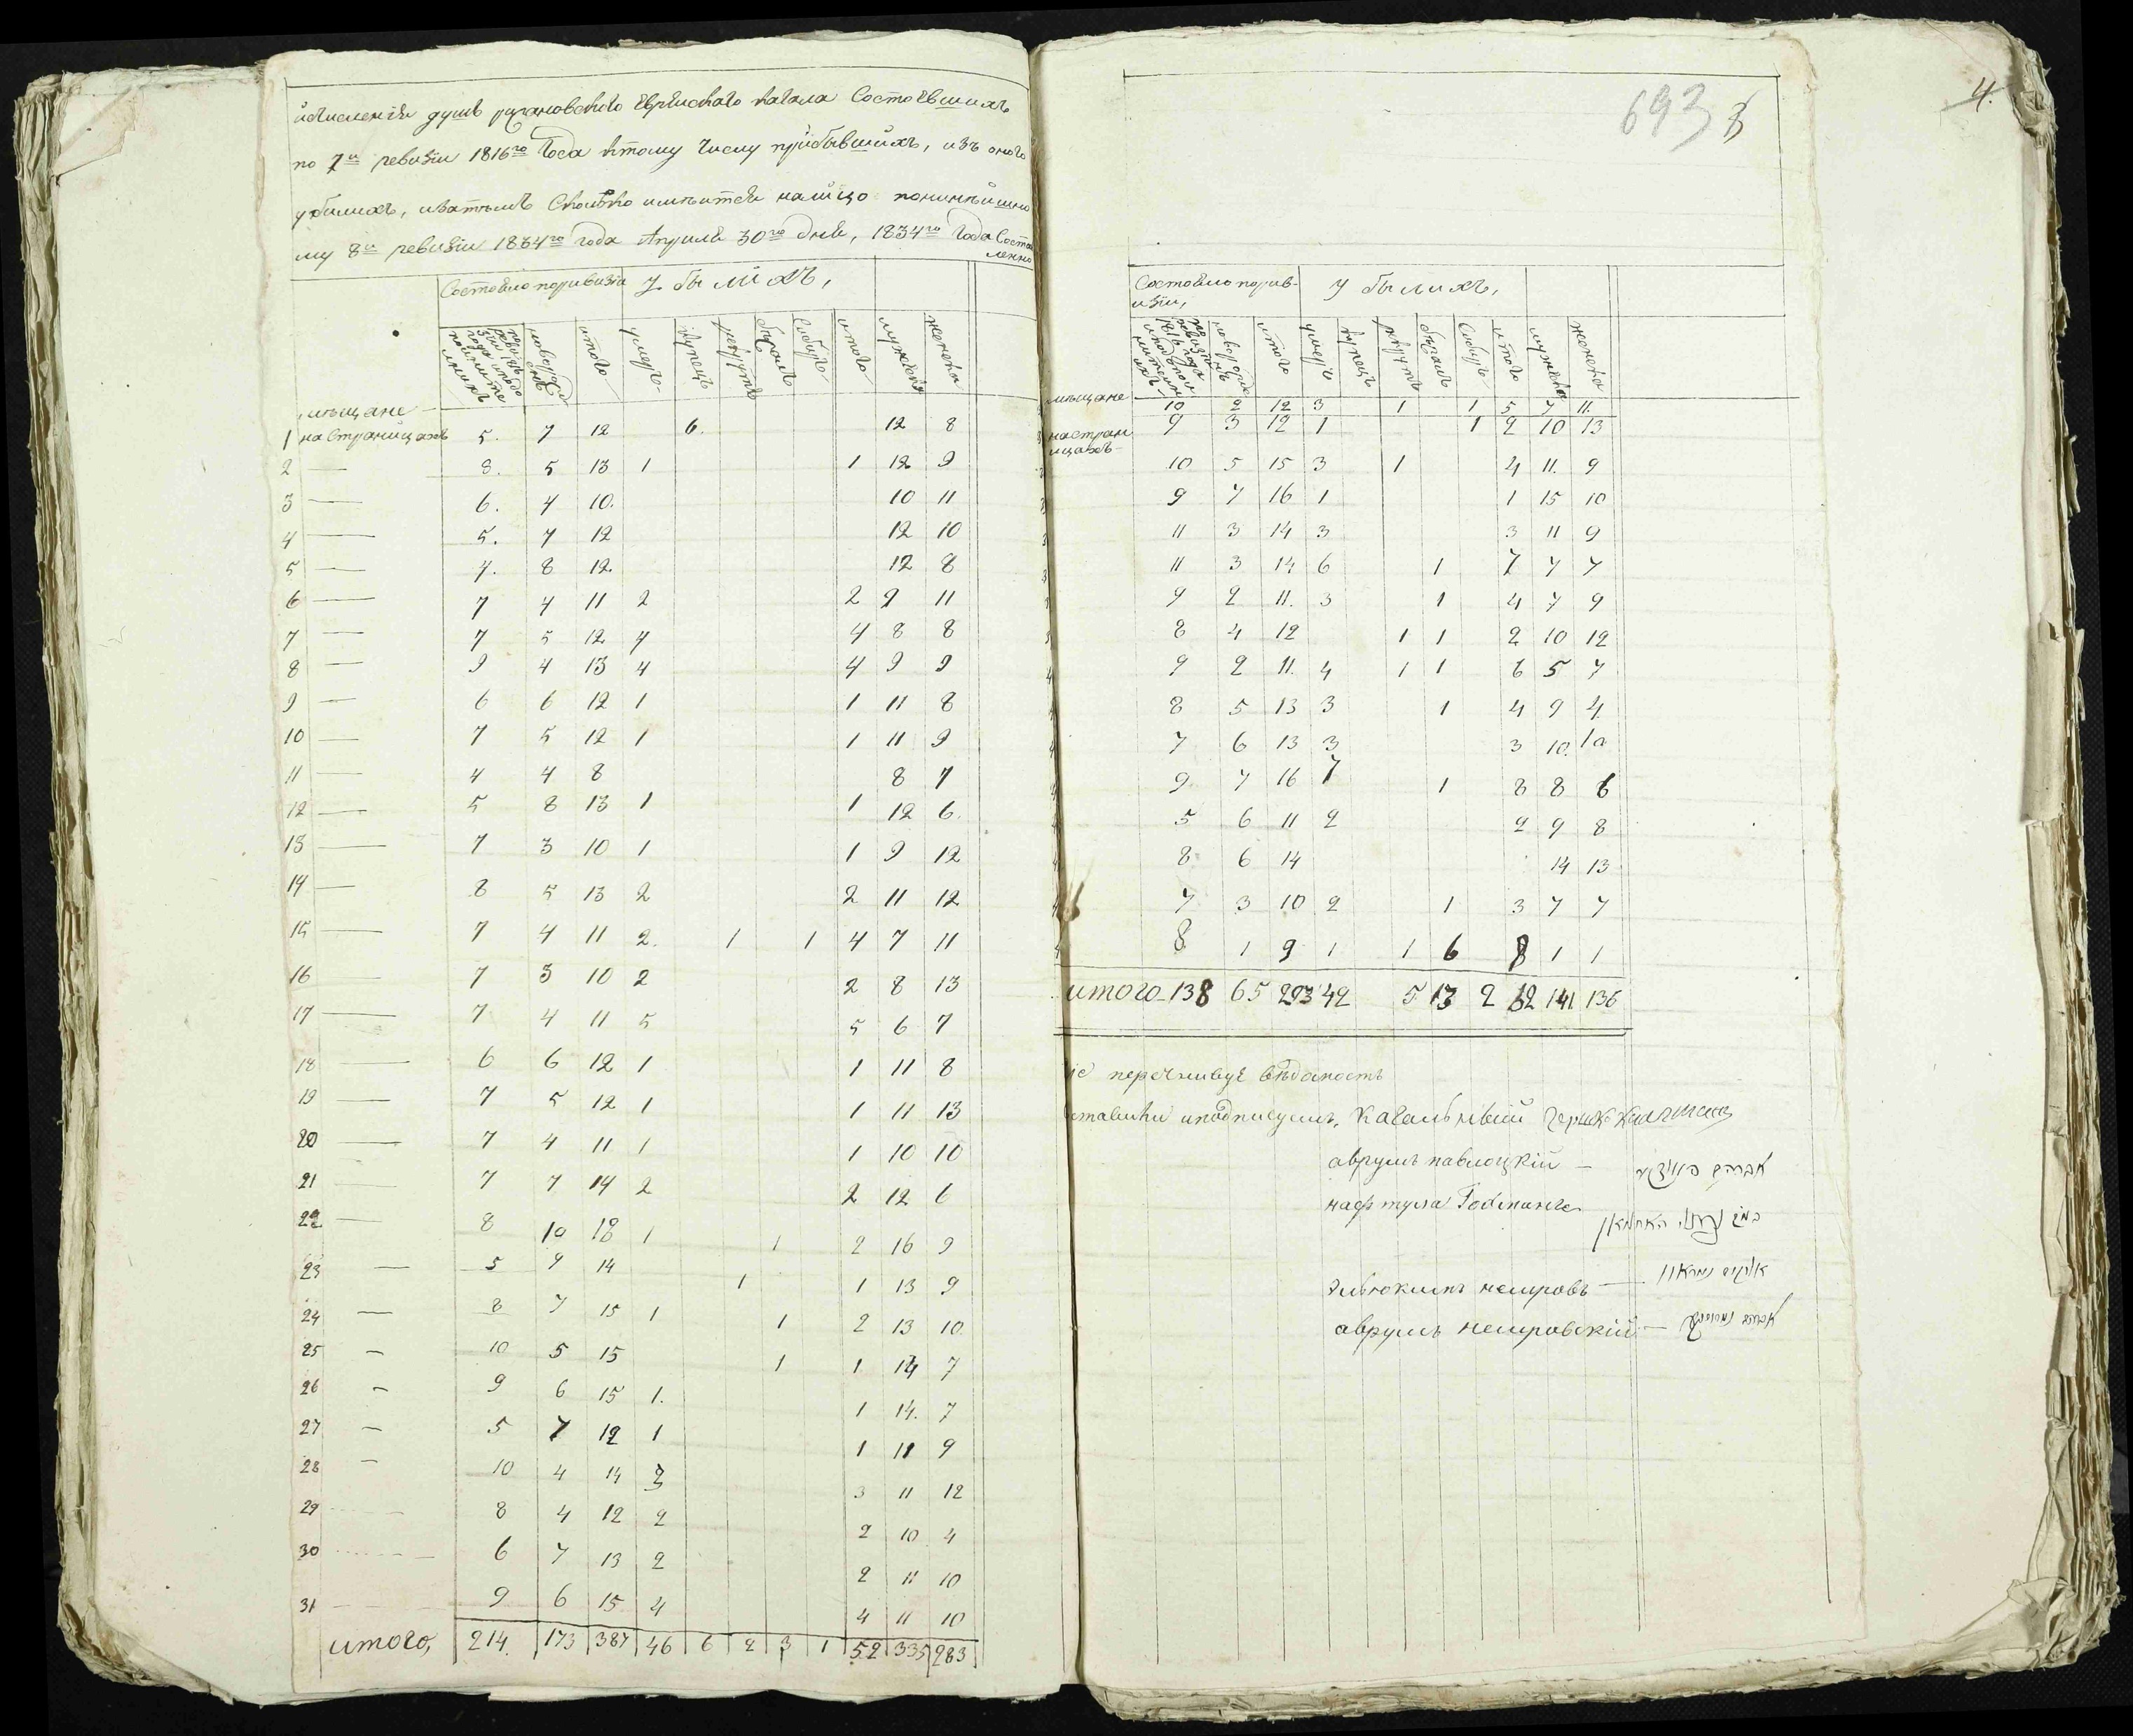 исчисленія душъ еврейскаго кагала состоявшихъ
по 7й ревизіи 1816го года ктому числу прибывшихъ, изъ оного
убылихъ, изатѣмъ Сколько имѣится налицо понинѣйшно
му 8й ревизіи 1834го года Апреля 30го дня, 1834го Года Соста
вленно
Состояло поривизіи убылихъ,
новорожденихъ итого умеръ купецъ рекрутъ събѣгалъ итого мужеска женска
мѣщане
1 на страницахъ 5. 7 12 6. 12 8
2 — 8. 5 13 1 1 12 9
3 — 6. 4 10. 10 11
4 — 5. 7 12 12 10
5 — 4. 8 12. 12 8
6 — 7 4 11 2 2 9 11
7 — 7 5 12 4 4 8 8
8 — 9 4 13 4 4 9 9
9 — 6 6 12 1 1 11 8
10 — 7 5 12 1 1 11 9
11 — 4 4 8 8 7
12 — 5 8 13 1 1 12 6.
13 — 7 3 10 1 1 9 12
14 — 8 5 13 2 2 11 12
15 — 7 4 11 2. 1 1 4 7 11
16 — 7 3 10 2 2 8 13
17 — 7 4 11 5 5 6 7
18 — 6 6 12 1 1 11 8
19 — 7 5 12 1 1 11 13
20 — 7 4 11 1 1 10 10
21 — 7 7 14 2 2 12 6
22 — 8 10 18 1 1 2 16 9
23 — 5 9 14 1 1 13 9
24 — 8 7 15 1 1 2 13 10
25 — 10 5 15 1 1 14 7
26 — 9 6 15 1. 1 14. 7
27 — 5 7 12 1 1 11 9
28 — 10 4 14 3 3 11 12
29 8 4 12 2 2 10 4
30 6 7 13 2 2 11 10
31 9 6 15 4 4 11 10
итого, 214. 173 387 46 6 2 3 1 52 335 283
693
4.
Состояло порив-
изіи,
убылихъ,
итого умеръ купецъ рекрутъ итого мужеска женска
мѣщане 10 2 12 3 1 1 5 7 11.
настран 9 3 12 1 1 2 10 13
ицахъ 10 5 15 3 1 4 11. 9
9 7 16 1 1 15 10
11 3 14 3 3 11 9
11 3 14 6 1 7 7 7
9 2 11. 3 1 4 7 9
8 4 12 1 1 2 10 12
9 2 11. 4 1 1 6 5 7
8 5 13 3 1 4 9 4
7 6 13 3 3 10. 10
9 7 16 7 1 8 8 6
5 6 11 2 2 9 8
8 6 14 14 13
7 3 10 2 1 3 7 7
8 1 9 1 1 6 8 1 1
итого 138 65 203 42 5 13 2 62 141 136
перечнивую вѣдамость
иподписуимъ, Кагальный
аврумъ павлоцкій — אברהם
нафтула
немировъ —
аврумъ немировскій — אברהם